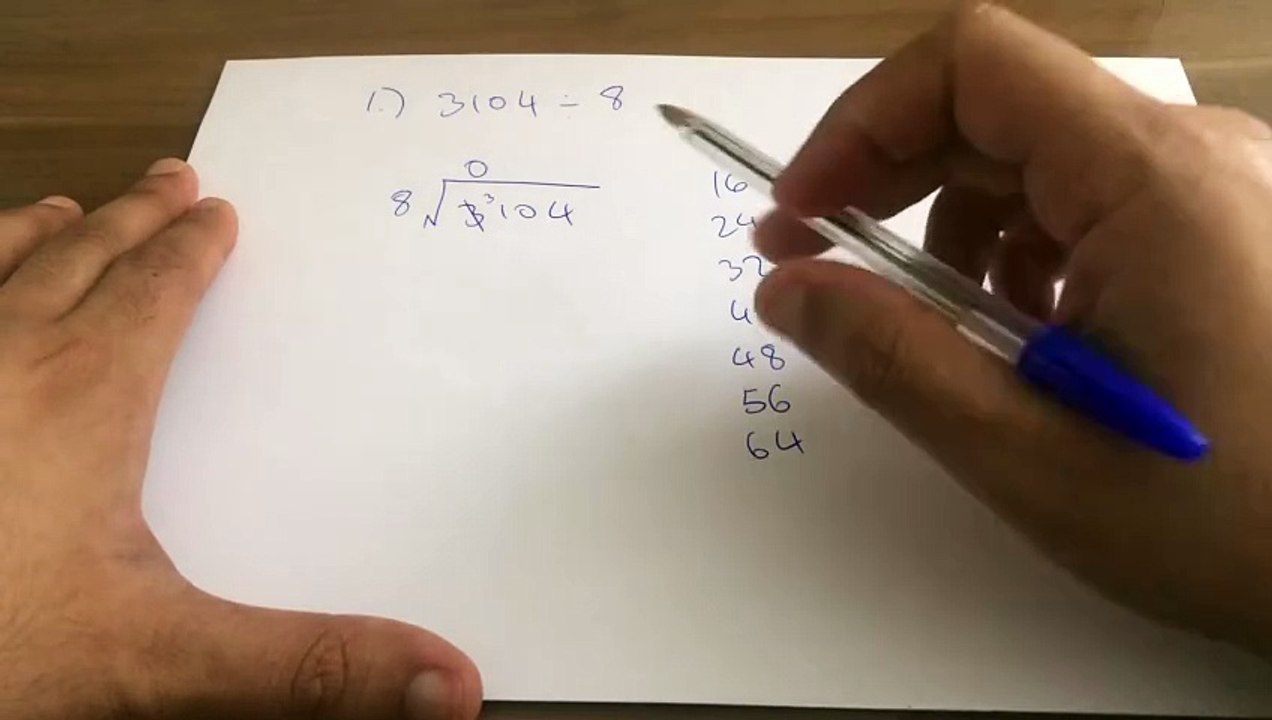 1.) 3104 ÷ 8
0
8 √3³104
16
24
32
4
48
56
64